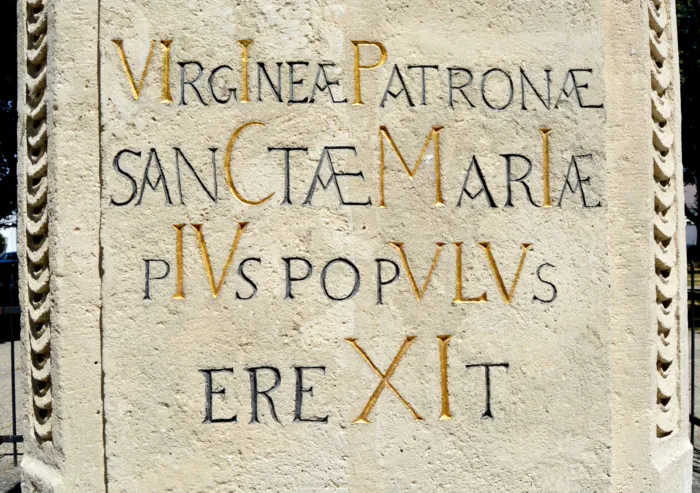 VIRGINEÆ PATRONÆ
SANCTÆ MARIÆ
PIVS POPVLVS
EREXIT